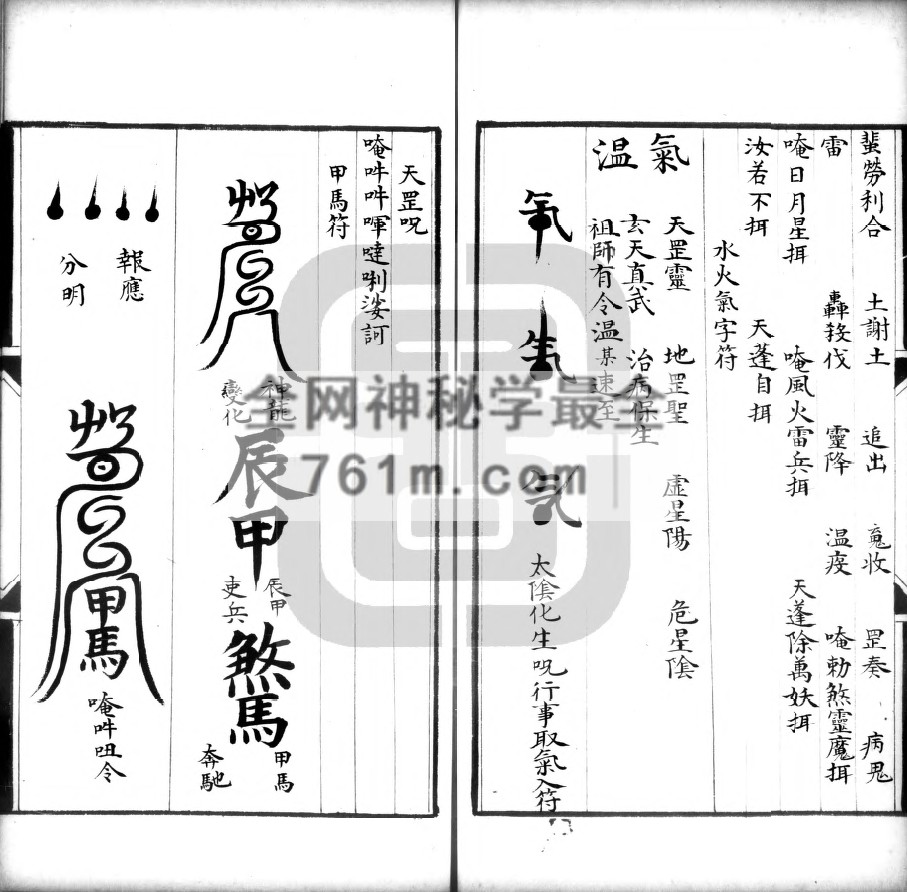 蜚勞利合　土謝土　追出　䰡收　罡奏　病鬼
雷　轟𢪎伐　靈降　温疫　唵勅煞靈魔揖
唵日月星揖　唵風火雷兵揖　天蓬除萬妖揖
汝若不揖　天蓬自揖
水火氣字符
氣　天罡靈　地罡聖　虛星陽　危星陰
玄天真武　治病保生
温　祖師有令温某速至
太陰化生咒行事取氣入符
天罡咒
唵吽吽㖇噠唎娑訶
甲馬符
神龍
變化
辰
甲
辰甲
吏兵
煞
馬
甲馬
奔馳
報應
分明
甲馬
唵吽呾令
全网神秘学最全
761m.com